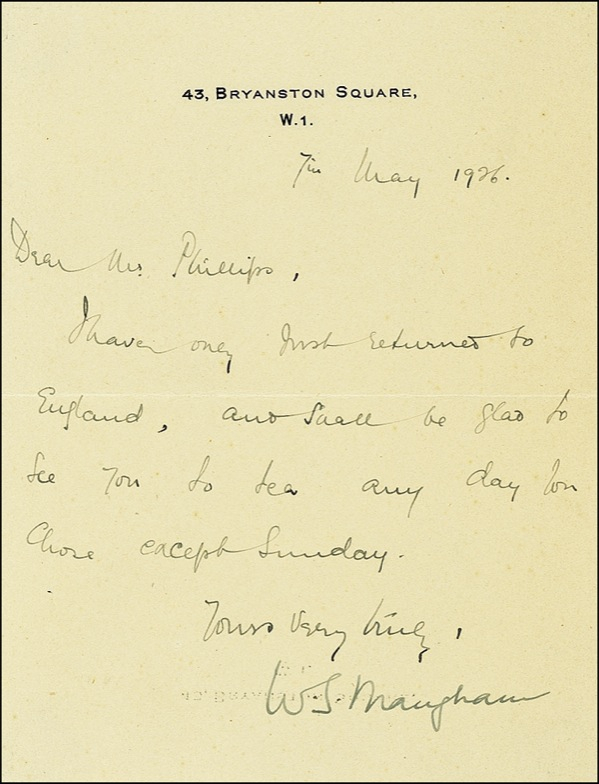 43, BRYANSTON SQUARE,
W.1.
7th May 1926.
Dear Mrs Phillips,
I have only just returned to
England, and shall be glad to
see you to tea any day you
chose except Sunday.
Yours very truly,
W.S. Maugham